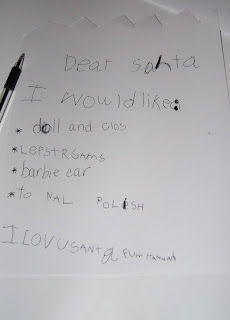 Dear santa
I would like:
* doll and clos
* LEPSTRGAMS
* barbie car
* to NAL POLiSH
I LOV U SANTa FUM HANNAH